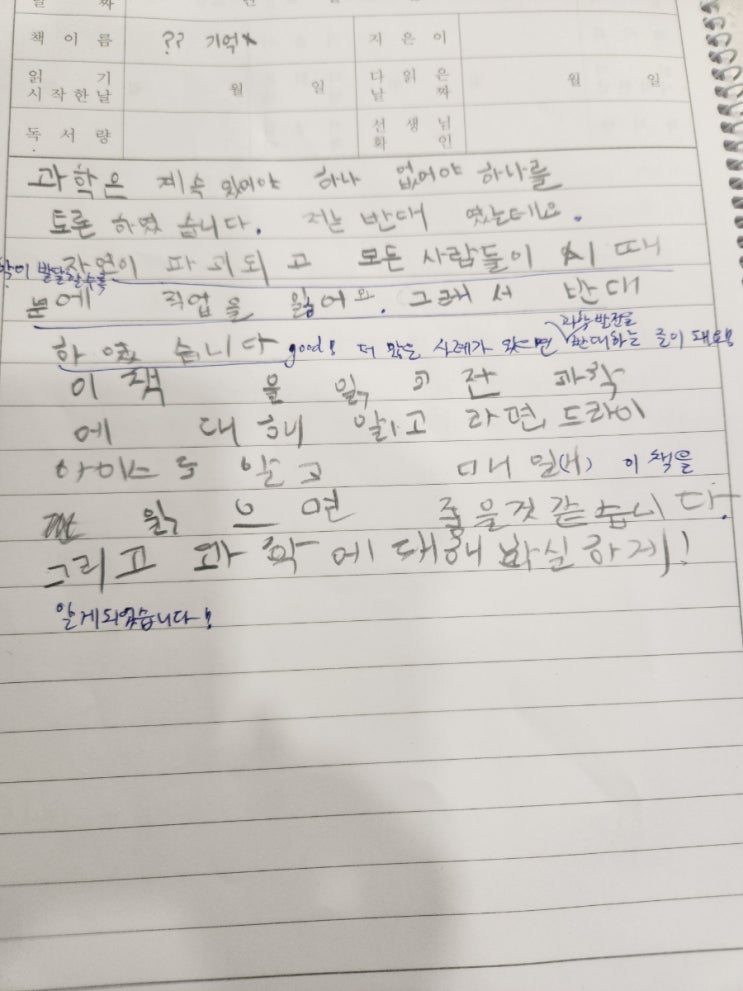 날 짜 년 월 일
책 이 름 ?? 기억x 지 은 이
읽 기 시 작 한 날 월 일 다 읽 은 날 짜 월 일
독 서 량 선 생 님 확 인
과학은 계속 있어야 하나 없어야 하나를
토론 하였 습니다. 저는 반대 였는데요.
발달할수록 자연이 파괴되 고 모든 사람들이 AI 때
문에 직업을 잃어요. 그래 서 반대
과학발전을
하 였 습니다 good! 더 많은 사례가 있으면 반대하는 글이 돼요!
이 책 을 읽 고 전 과학
에 대 해 알고 라면, 드라이
아이스 도 알 고 매 일(에) 이 책을
읽 으 면 좋을것 같 습니 다.
그리고 과 학 에 대해 확실 하게!
알게되었습니다!